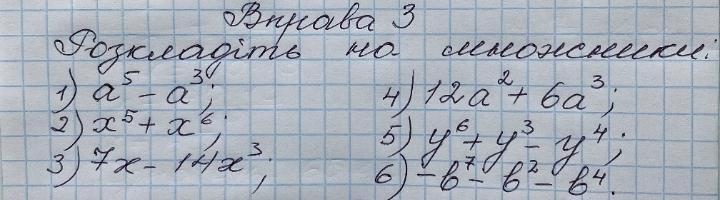 Вправа 3
Розкладіть на множники:
1) a⁵ - a³;
2) x⁵ + x⁶;
3) 7x - 14x³;
4) 12a² + 6a³;
5) y⁶ + y³ - y⁴;
6) -b⁷ - b² - b⁴.